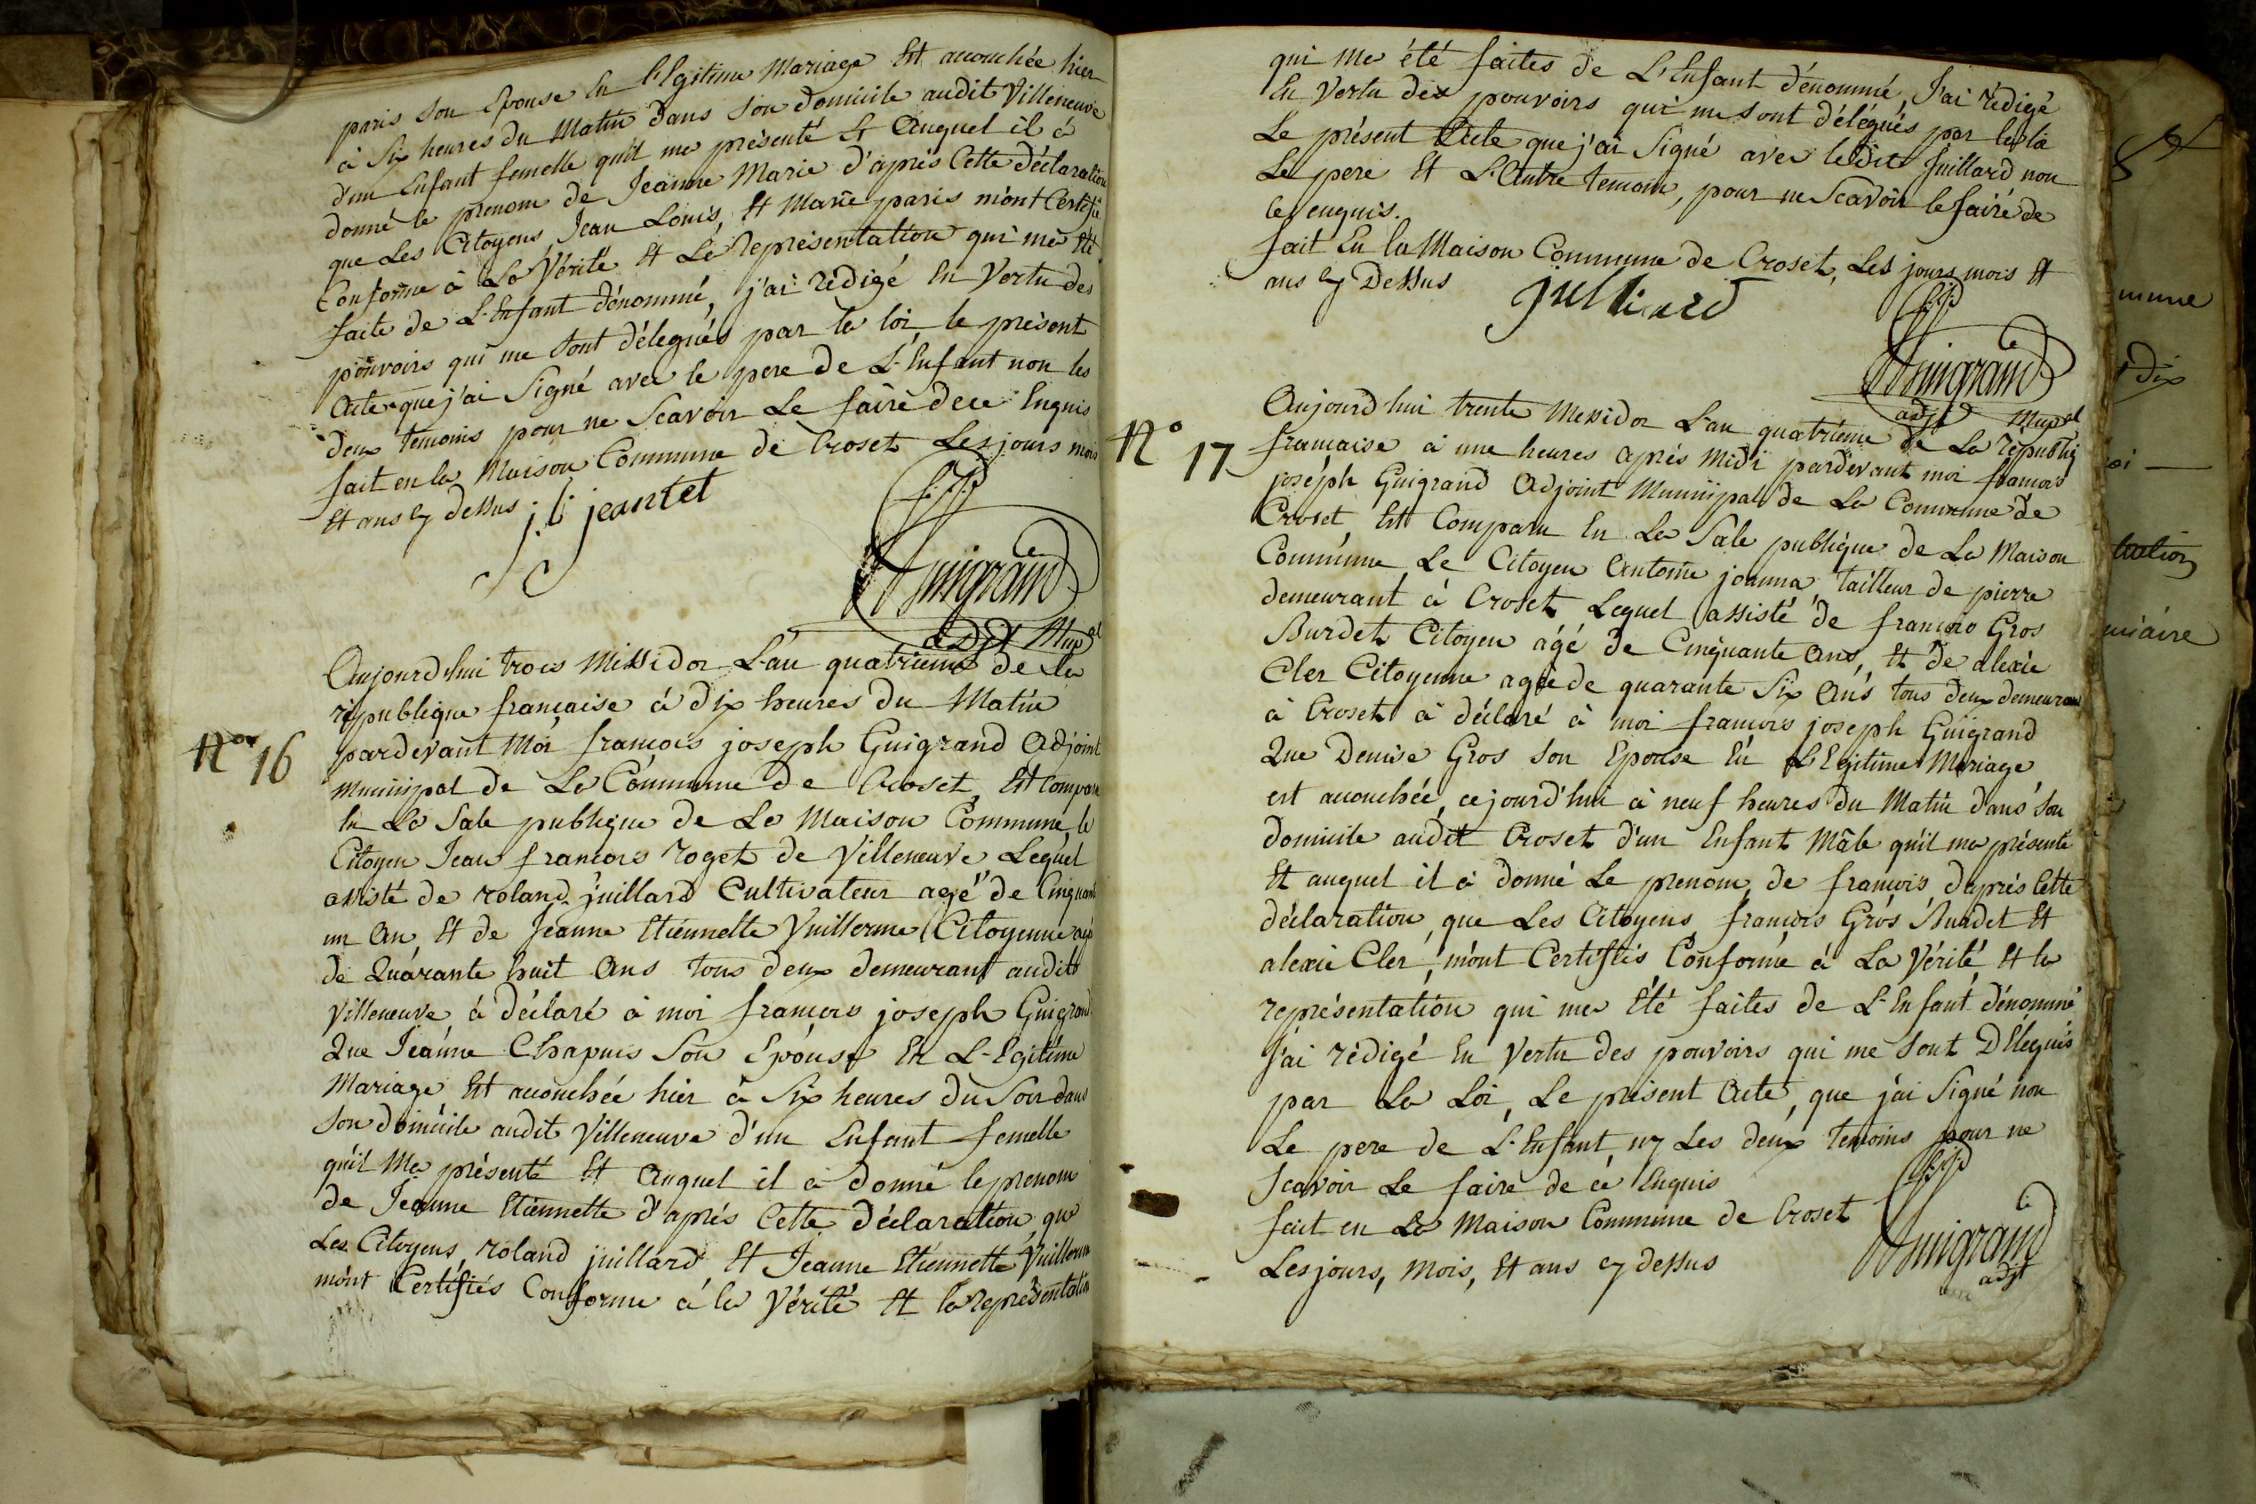 paris son Epouse En l'Egitime Mariage Est accouchée hier
à Six heures du Matin dans son domicile audit Villeneuve
d'un Enfant femelle qu'il ma présenté Et Auquel il à
donné le prenom de Jeanne Marie d'après Cette déclaration
que Les Citoyens Jean Louis, Et Marie paris m'ont Certifié
Conforme à La Vérité Et Le représentation qui ma Eté
faite de L'Enfant dénommé, j'ai rédigé En Vertu des
pouvoirs qui me sont délegués par la loi le présent
Acte que j'ai Signé avec le pere de L'Enfant non les
deux temoins pour ne Scavoir Le faire de ce Enquis
fait en la Maison Commune de Croset Les jours mois
Et ans cy dessus j. l. jeantet
f. j.
Guigrand
adjt Mupal
Aujourd'hui trois Messidor L'an quatrieme de la
république française à dix heures du Matin
N° 16
pardevant Moi françois joseph Guigrand Adjoint
Municipal de La Commune de Croset, Est Comparu
En La Sale publique de La Maison Commune, le
Citoyen Jean françois roget de Villeneuve Lequel
assisté de roland juillard Cultivateur agé de Cinquante
un An, Et de Jeanne Etiennette Vuillerme Citoyenne agé
de Quarante huit Ans tous deux demeurant audit
Villeneuve à déclaré à moi françois joseph Guigrand
Que Jeanne Chapuis Son Epouse En L'Egitime
Mariage Est accouchée hier à Six heures du Soir dans
Son domicile audit Villeneuve d'un Enfant femelle
qu'il Ma présenté Et Auquel il à donné le prenom
de Jeanne Etiennette d'aprés Cette déclaration que
Les Citoyens roland juillard Et Jeanne Etiennette Vuillerme
m'ont Certifiés Conforme à la Vérité Et la représentation
qui Ma été faites de L'Enfant dénommé, J'ai rédigé
En Vertu des pouvoirs qui me sont délégués par la la
Le présent Acte que j'ai Signé avec ledit Juillard non
Le pere Et L'Autre temoin, pour ne Scavoir le faire de
ce enquis.
fait En la Maison Commune de Croset, Les jours mois Et
ans cy Dessus Julliard
f. j.
Guigrand
adjt Mupal
N° 17
Aujourd'hui trente Messidor L'an quatrieme de La républiq
française à une heures après Midi pardevant moi françois
joséph Guigrand Adjoint Municipal de La Commune de
Croset, Est Comparu En La Sale publique de La Maison
Commune Le Citoyen Antoine joanna, tailleur de pierre
demeurant à Croset, Lequel assisté de françois Gros
Burdet Citoyen agé de Cinquante ans, Et de alexie
Cler Citoyenne agée de quarante Six Ans tous deux demeurant
à Croset à déclaré à moi françois joseph Guigrand
Que Denise Gros son Epouse En L'Egitime Mariage
est accouchée, cejourd'hui à neuf heures du Matin dans son
domicile audit Croset d'un Enfant Mâle qu'il ma présenté
Et auquel il à donné Le prenom, de françois d'après Cette
déclaration, que Les Citoyens, françois Gros Burdet Et
alexie Cler, m'ont Certifiés Conforme à La Vérité, Et la
représentation qui ma Eté faites de L'Enfant dénommé
j'ai rédigé En Vertu des pouvoirs qui me sont Délegués
par La Loi, Le présent Acte, que j'ai Signé non
Le pere de L'Enfant, ny Les deux temoins pour ne
Scavoir Le faire de ce Enquis
fait en La Maison Commune de Croset
Les jours, Mois, Et ans cy dessus
f. j.
Guigrand
adjt
mune
dix